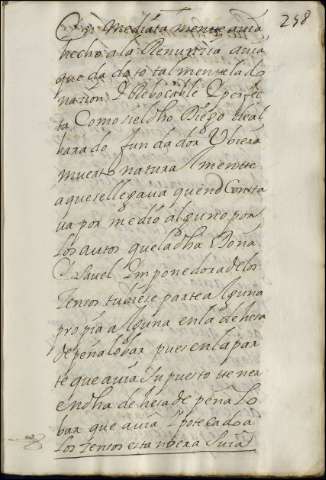 298
mediata mente auia
hecho a la Renunzia auia
quedado totalmente la do
nazion Yrrebocable Y perfe
ta Como si el dho Diego de al
barado fundador Ubiera
muerto naturalmente
a que se llegaua que no Consta
ua por medio alguno por
los autos que la dha Doña
Ysauel Ymponedora de los
zensos tubiese parte alguna
propia alguna en la dehesa
de peñalobar pues en la par
te que auia Supuesto tenea
en dha dehesa de peñalo
bar que auia Ypotecado a
los zensos estaubiera Suia